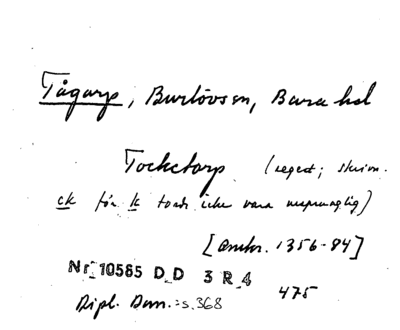 Tågarp, Burlövs sn, Bara hd
Tocketorp (regest; skrivn.
ck för k torde icke vara ursprunglig)
[omkr. 1356-84]
Nr 10585 D D 3 R 4
Dipl. Dan. :s.368 475